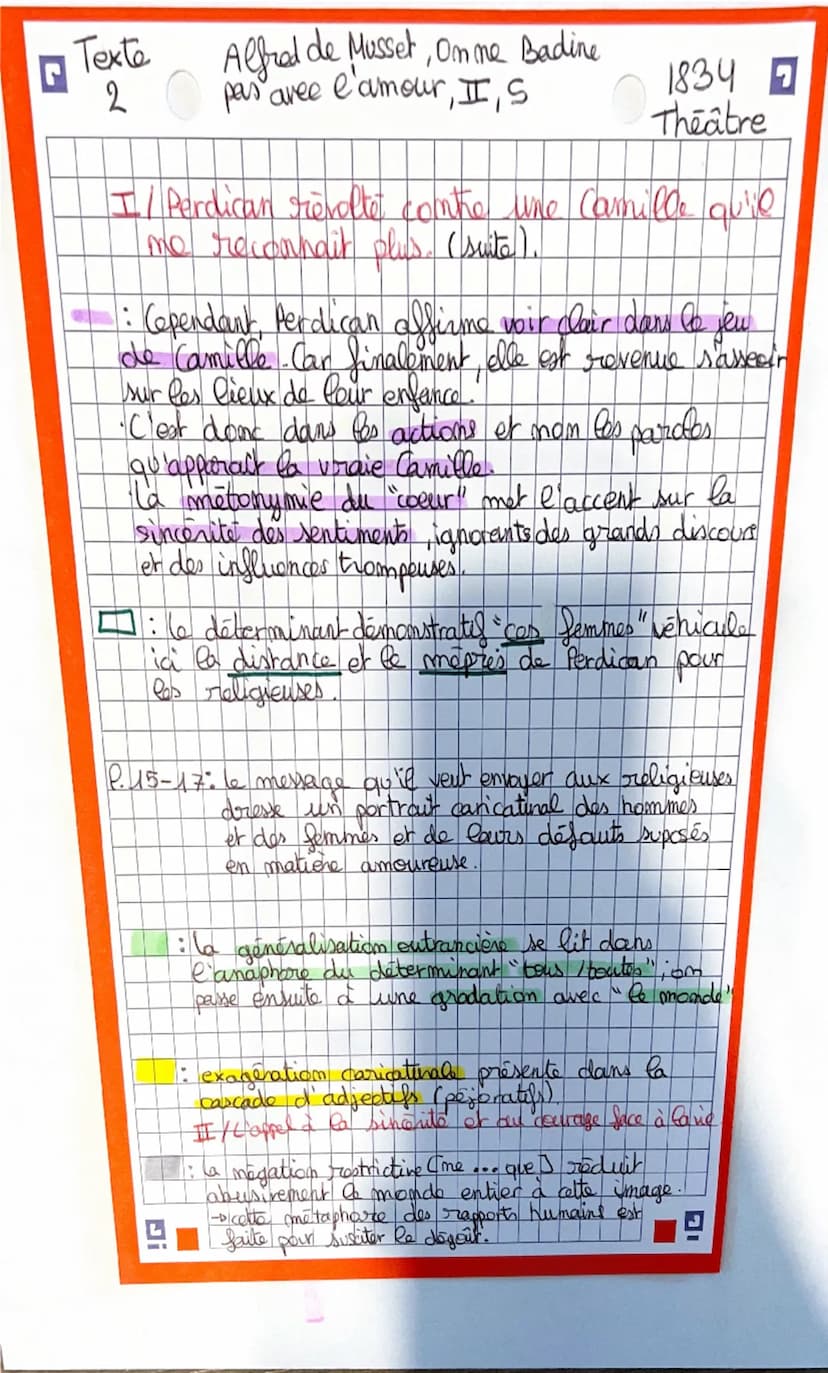 Texte
2
Alfred de Musset, On ne Badine
pas avec l'amour, II, 5
1834
Théâtre
I/ Perdican révolté contre une Camille qu'il
ne reconnait plus. (suite).
: Cependant, Perdican affirme voir clair dans le jeu
de Camille. Car finalement, elle est revenue s'asseoir
sur les lieux de leur enfance.
· C'est donc dans les actions et non les paroles
qu'apparait la vraie Camille.
La métonymie du "coeur" met l'accent sur la
sincérité des sentiments, ignorants des grands discours
et des influences trompeuses.
: le déterminant démonstratif "ces femmes" véhicule
ici la distance et le mépris de Perdican pour
les religieuses.
l.15-17: le message qu'il veut envoyer aux religieuses
dresse un portrait caricatural des hommes
et des femmes et de leurs défauts suposés
en matière amoureuse.
: la généralisation outrancière se lit dans
l'anaphore du déterminant "tous/toutes"; on
passe ensuite à une gradation avec "le monde"
: exagération caricaturale présente dans la
cascade d'adjectifs (péjoratifs)
II/ L'appel à la sincérité et au courage face à la vie
: la négation restrictive [ne ... que] réduit
abusivement le monde entier à cette image.
→ cette métaphore des rapports humains est
faite pour susciter le dégoût.